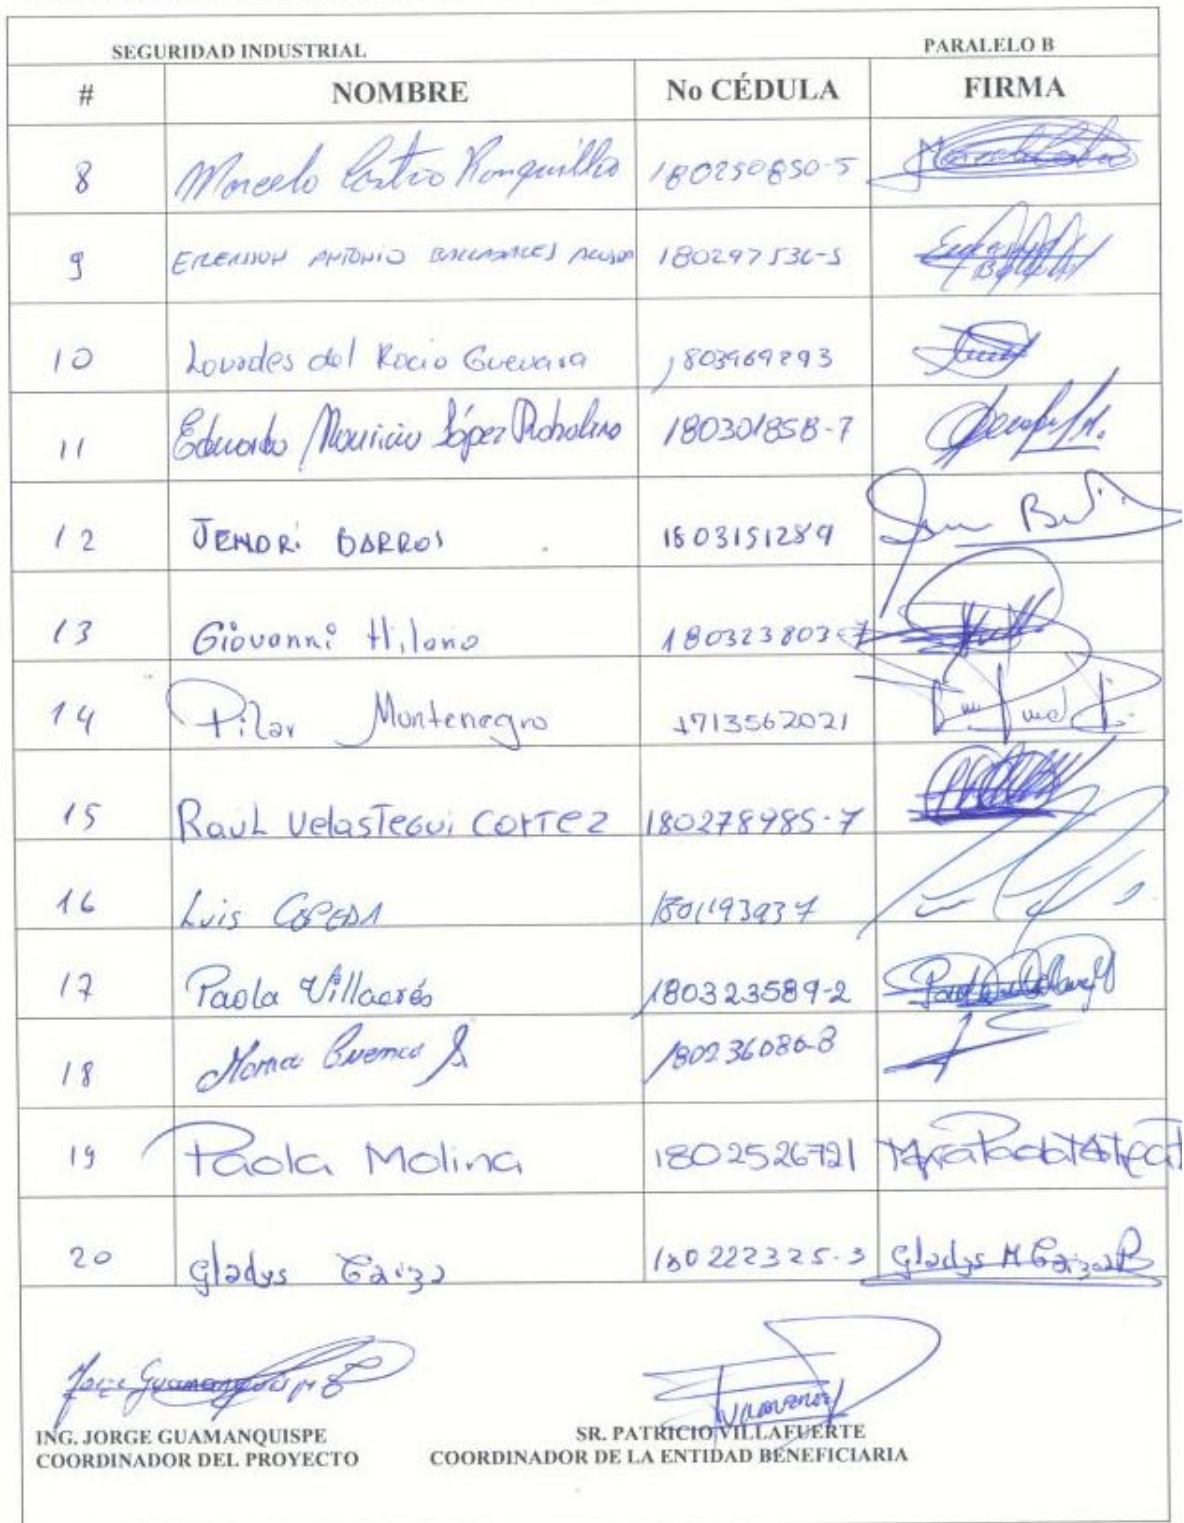 SEGURIDAD INDUSTRIAL PARALELO B
# NOMBRE No CÉDULA FIRMA
8 Marcelo Castro Ronquillo 180250850-5
9 ANTONIO 180297536-5
10 Lourdes del Rocio Guevara 1803969293
11 Eduardo Mauricio López Robalino 180301858-7
12 JENDRI BARROS 1803151289
13 Giovanni Hilario 180323803-7
14 Pilar Montenegro 1713562021
15 Raul Velastegui Cortez 180278985-7
16 Luis CEPEDA 1801193937
17 Paola Villacrés 180323589-2
18 Cuenca S 180236086-8
19 Paola Molina 1802526721
20 Gladys Caiza 180222325-3 Gladys M Caiza B
ING. JORGE GUAMANQUISPE SR. PATRICIO VILLAFUERTE
COORDINADOR DEL PROYECTO COORDINADOR DE LA ENTIDAD BENEFICIARIA